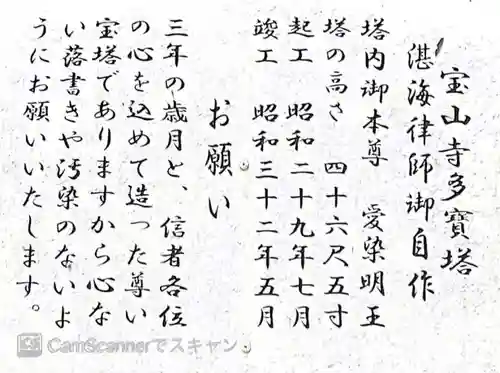 宝山寺多寳塔
湛海律師御自作
塔内御本尊　愛染明王
塔の高さ　四十六尺五寸
起工　昭和二十九年七月
竣工　昭和三十二年五月
お願い
三年の歳月と、信者各位
の心を込めて造った尊い
宝塔でありますから心な
い落書きや汚染のないよ
うにお願いいたします。
CamScannerでスキャン